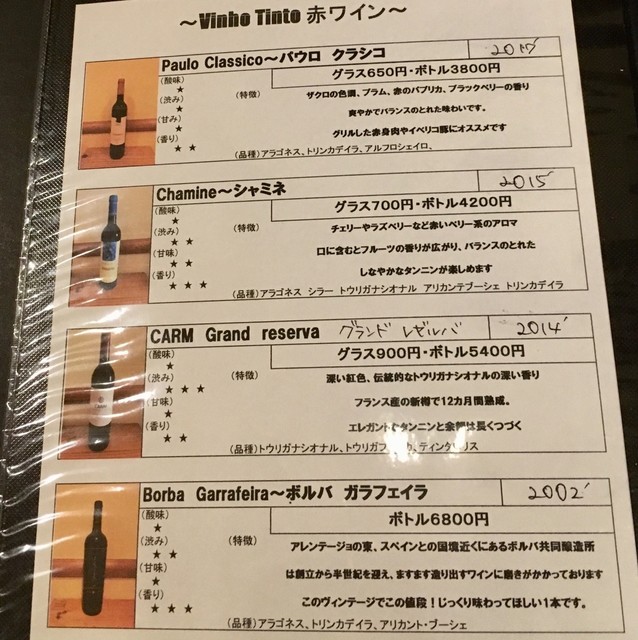 ～Vinho Tinto 赤ワイン～
Paulo Classico～パウロ クラシコ 2017'
グラス650円・ボトル3800円
(酸味)
★
(渋み)
★
(甘み)
★
(香り)
★ ★
(特徴) ザクロの色調、プラム、赤のパプリカ、ブラックベリーの香り
爽やかでバランスのとれた味わいです。
グリルした赤身肉やイベリコ豚にオススメです
(品種)アラゴネス、トリンカデイラ、アルフロシェイロ、
Chamine～シャミネ 2015'
グラス700円・ボトル4200円
(酸味)
★
(渋み)
★ ★
(甘味)
★ ★
(香り)
★ ★ ★
(特徴) チェリーやラズベリーなど赤いベリー系のアロマ
口に含むとフルーツの香りが広がり、バランスのとれた
しなやかなタンニンが楽しめます
(品種) アラゴネス シラー トウリガナシオナル アリカンテブーシェ トリンカデイラ
CARM Grand reserva グランド レゼルバ 2014'
グラス900円・ボトル5400円
(酸味)
★
(渋み)
★ ★ ★
(甘味)
★
(香り)
★ ★
(特徴) 深い紅色、伝統的なトウリガナシオナルの深い香り
フランス産の新樽で12カ月間熟成。
エレガントなタンニンと余韻は長くつづく
(品種)トウリガナシオナル、トウリガフ カ、ティンタ リス
Borba Garrafeira～ボルバ ガラフェイラ 2002'
ボトル6800円
(酸味)
★
(渋み)
★ ★
(甘味)
★
(香り)
★ ★ ★
(特徴) アレンテージョの東、スペインとの国境近くにあるボルバ共同醸造所
は創立から半世紀を迎え、ますます造り出すワインに磨きがかかっております
このヴィンテージでこの値段！じっくり味わってほしい1本です。
(品種)アラゴネス、トリンカデイラ、アリカント・ブーシェ